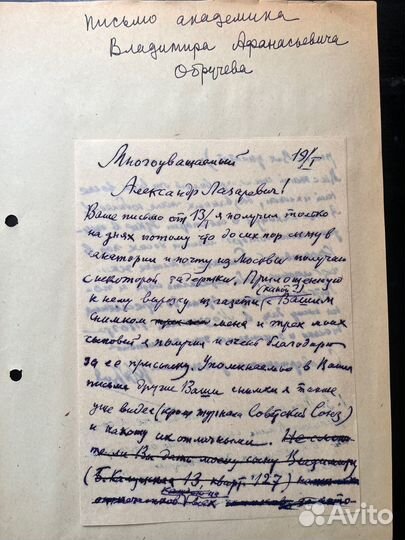 письмо академика
Владимира Афанасьевича
Обручева
Многоуважаемый 19/I
Александр Лазаревич!
Ваше письмо от 13/I я получил только
на днях потому что до сих пор живу в
санатории и почту из Москвы получаю
с некоторой задержкой. Приложенную
(какой?)
к нему вырезку из газеты с Вашим
снимком меня и трех моих
сыновей я получил и очень благодарю
за ее присылку. Упоминаемые в Вашем
письме другие Ваши снимки я также
уже видел (кроме журнала Советский Союз)
и нахожу их отличными. Не
те ли Вы дать моему сыну Владимиру
(Б. Калужская 13, кварт. 127)
каждой из
всех
Avito